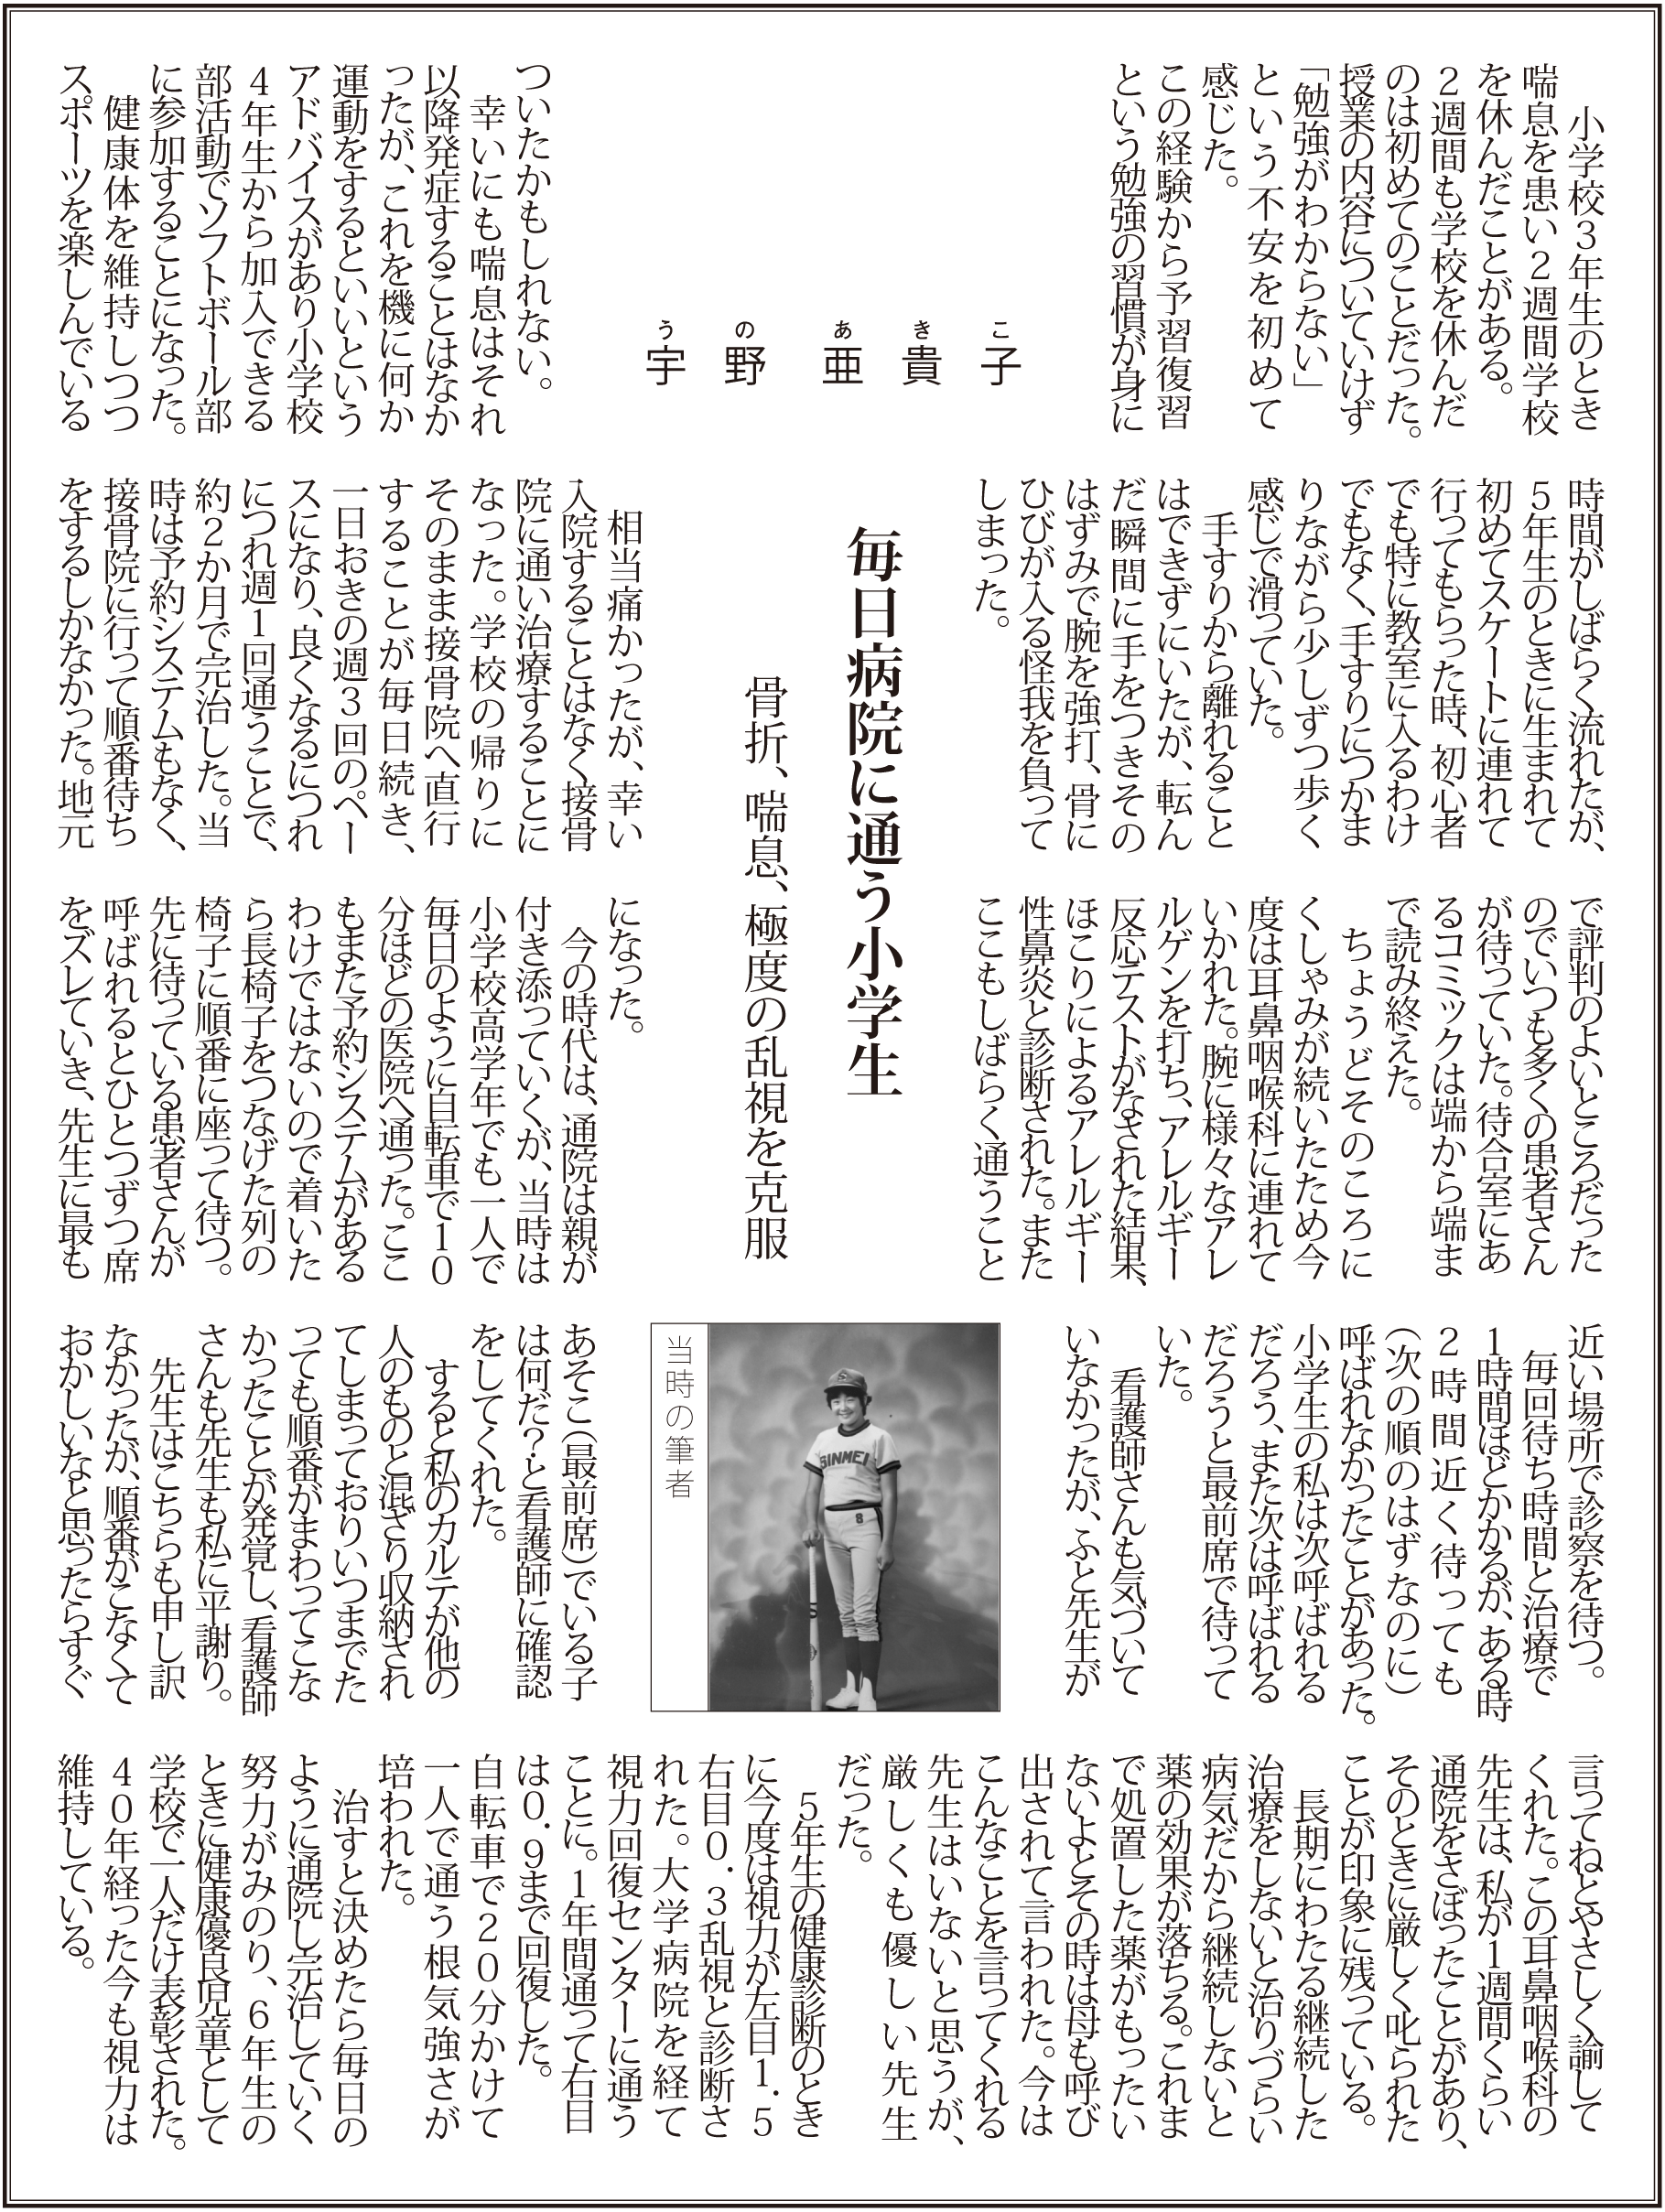 毎日病院に通う小学生
骨折、喘息、極度の乱視を克服
うの あきこ
宇野 亜貴子
小学校3年生のとき
喘息を患い2週間学校
を休んだことがある。
2週間も学校を休んだ
のは初めてのことだった。
授業の内容についていけず
「勉強がわからない」
という不安を初めて
感じた。
この経験から予習復習
という勉強の習慣が身に
ついたかもしれない。
幸いにも喘息はそれ
以降発症することはなか
ったが、これを機に何か
運動をするといいという
アドバイスがあり小学校
4年生から加入できる
部活動でソフトボール部
に参加することになった。
健康体を維持しつつ
スポーツを楽しんでいる
時間がしばらく流れたが、
5年生のときに生まれて
初めてスケートに連れて
行ってもらった時、初心者
でも特に教室に入るわけ
でもなく、手すりにつかま
りながら少しずつ歩く
感じで滑っていた。
手すりから離れること
はできずにいたが、転ん
だ瞬間に手をつきその
はずみで腕を強打、骨に
ひびが入る怪我を負って
しまった。
相当痛かったが、幸い
入院することはなく接骨
院に通い治療することに
なった。学校の帰りに
そのまま接骨院へ直行
することが毎日続き、
一日おきの週3回のペー
スになり、良くなるにつれ
につれ週1回通うことで、
約2か月で完治した。当
時は予約システムもなく、
接骨院に行って順番待ち
をするしかなかった。地元
で評判のよいところだった
のでいつも多くの患者さん
が待っていた。待合室にあ
るコミックは端から端ま
で読み終えた。
ちょうどそのころに
くしゃみが続いたため今
度は耳鼻咽喉科に連れて
いかれた。腕に様々なアレ
ルゲンを打ち、アレルギー
反応テストがなされた結果、
ほこりによるアレルギー
性鼻炎と診断された。また
ここもしばらく通うこと
になった。
今の時代は、通院は親が
付き添っていくが、当時は
小学校高学年でも一人で
毎日のように自転車で10
分ほどの医院へ通った。ここ
もまた予約システムがある
わけではないので着いた
ら長椅子をつなげた列の
椅子に順番に座って待つ。
先に待っている患者さんが
呼ばれるとひとつずつ席
をズレていき、先生に最も
近い場所で診察を待つ。
毎回待ち時間と治療で
1時間ほどかかるが、ある時
2時間近く待っても
(次の順のはずなのに)
呼ばれなかったことがあった。
小学生の私は次呼ばれる
だろう、また次は呼ばれる
だろうと最前席で待って
いた。
看護師さんも気づいて
いなかったが、ふと先生が
あそこ(最前席)でいる子
は何だ?と看護師に確認
をしてくれた。
すると私のカルテが他の
人のものと混ざり収納され
てしまっておりいつまでた
っても順番がまわってこな
かったことが発覚し、看護師
さんも先生も私に平謝り。
先生はこちらも申し訳
なかったが、順番がこなくて
おかしいなと思ったらすぐ
言ってねとやさしく諭して
くれた。この耳鼻咽喉科の
先生は、私が1週間くらい
通院をさぼったことがあり、
そのときに厳しく叱られた
ことが印象に残っている。
長期にわたる継続した
治療をしないと治りづらい
病気だから継続しないと
薬の効果が落ちる。これま
で処置した薬がもったい
ないよとその時は母も呼び
出されて言われた。今は
こんなことを言ってくれる
先生はいないと思うが、
厳しくも優しい先生
だった。
5年生の健康診断のとき
に今度は視力が左目1.5
右目0.3乱視と診断さ
れた。大学病院を経て
視力回復センターに通う
ことに。1年間通って右目
は0.9まで回復した。
自転車で20分かけて
一人で通う根気強さが
培われた。
治すと決めたら毎日の
ように通院し完治していく
努力がみのり、6年生の
ときに健康優良児童として
学校で一人だけ表彰された。
40年経った今も視力は
維持している。
当時の筆者
S
SINMEI
8
S